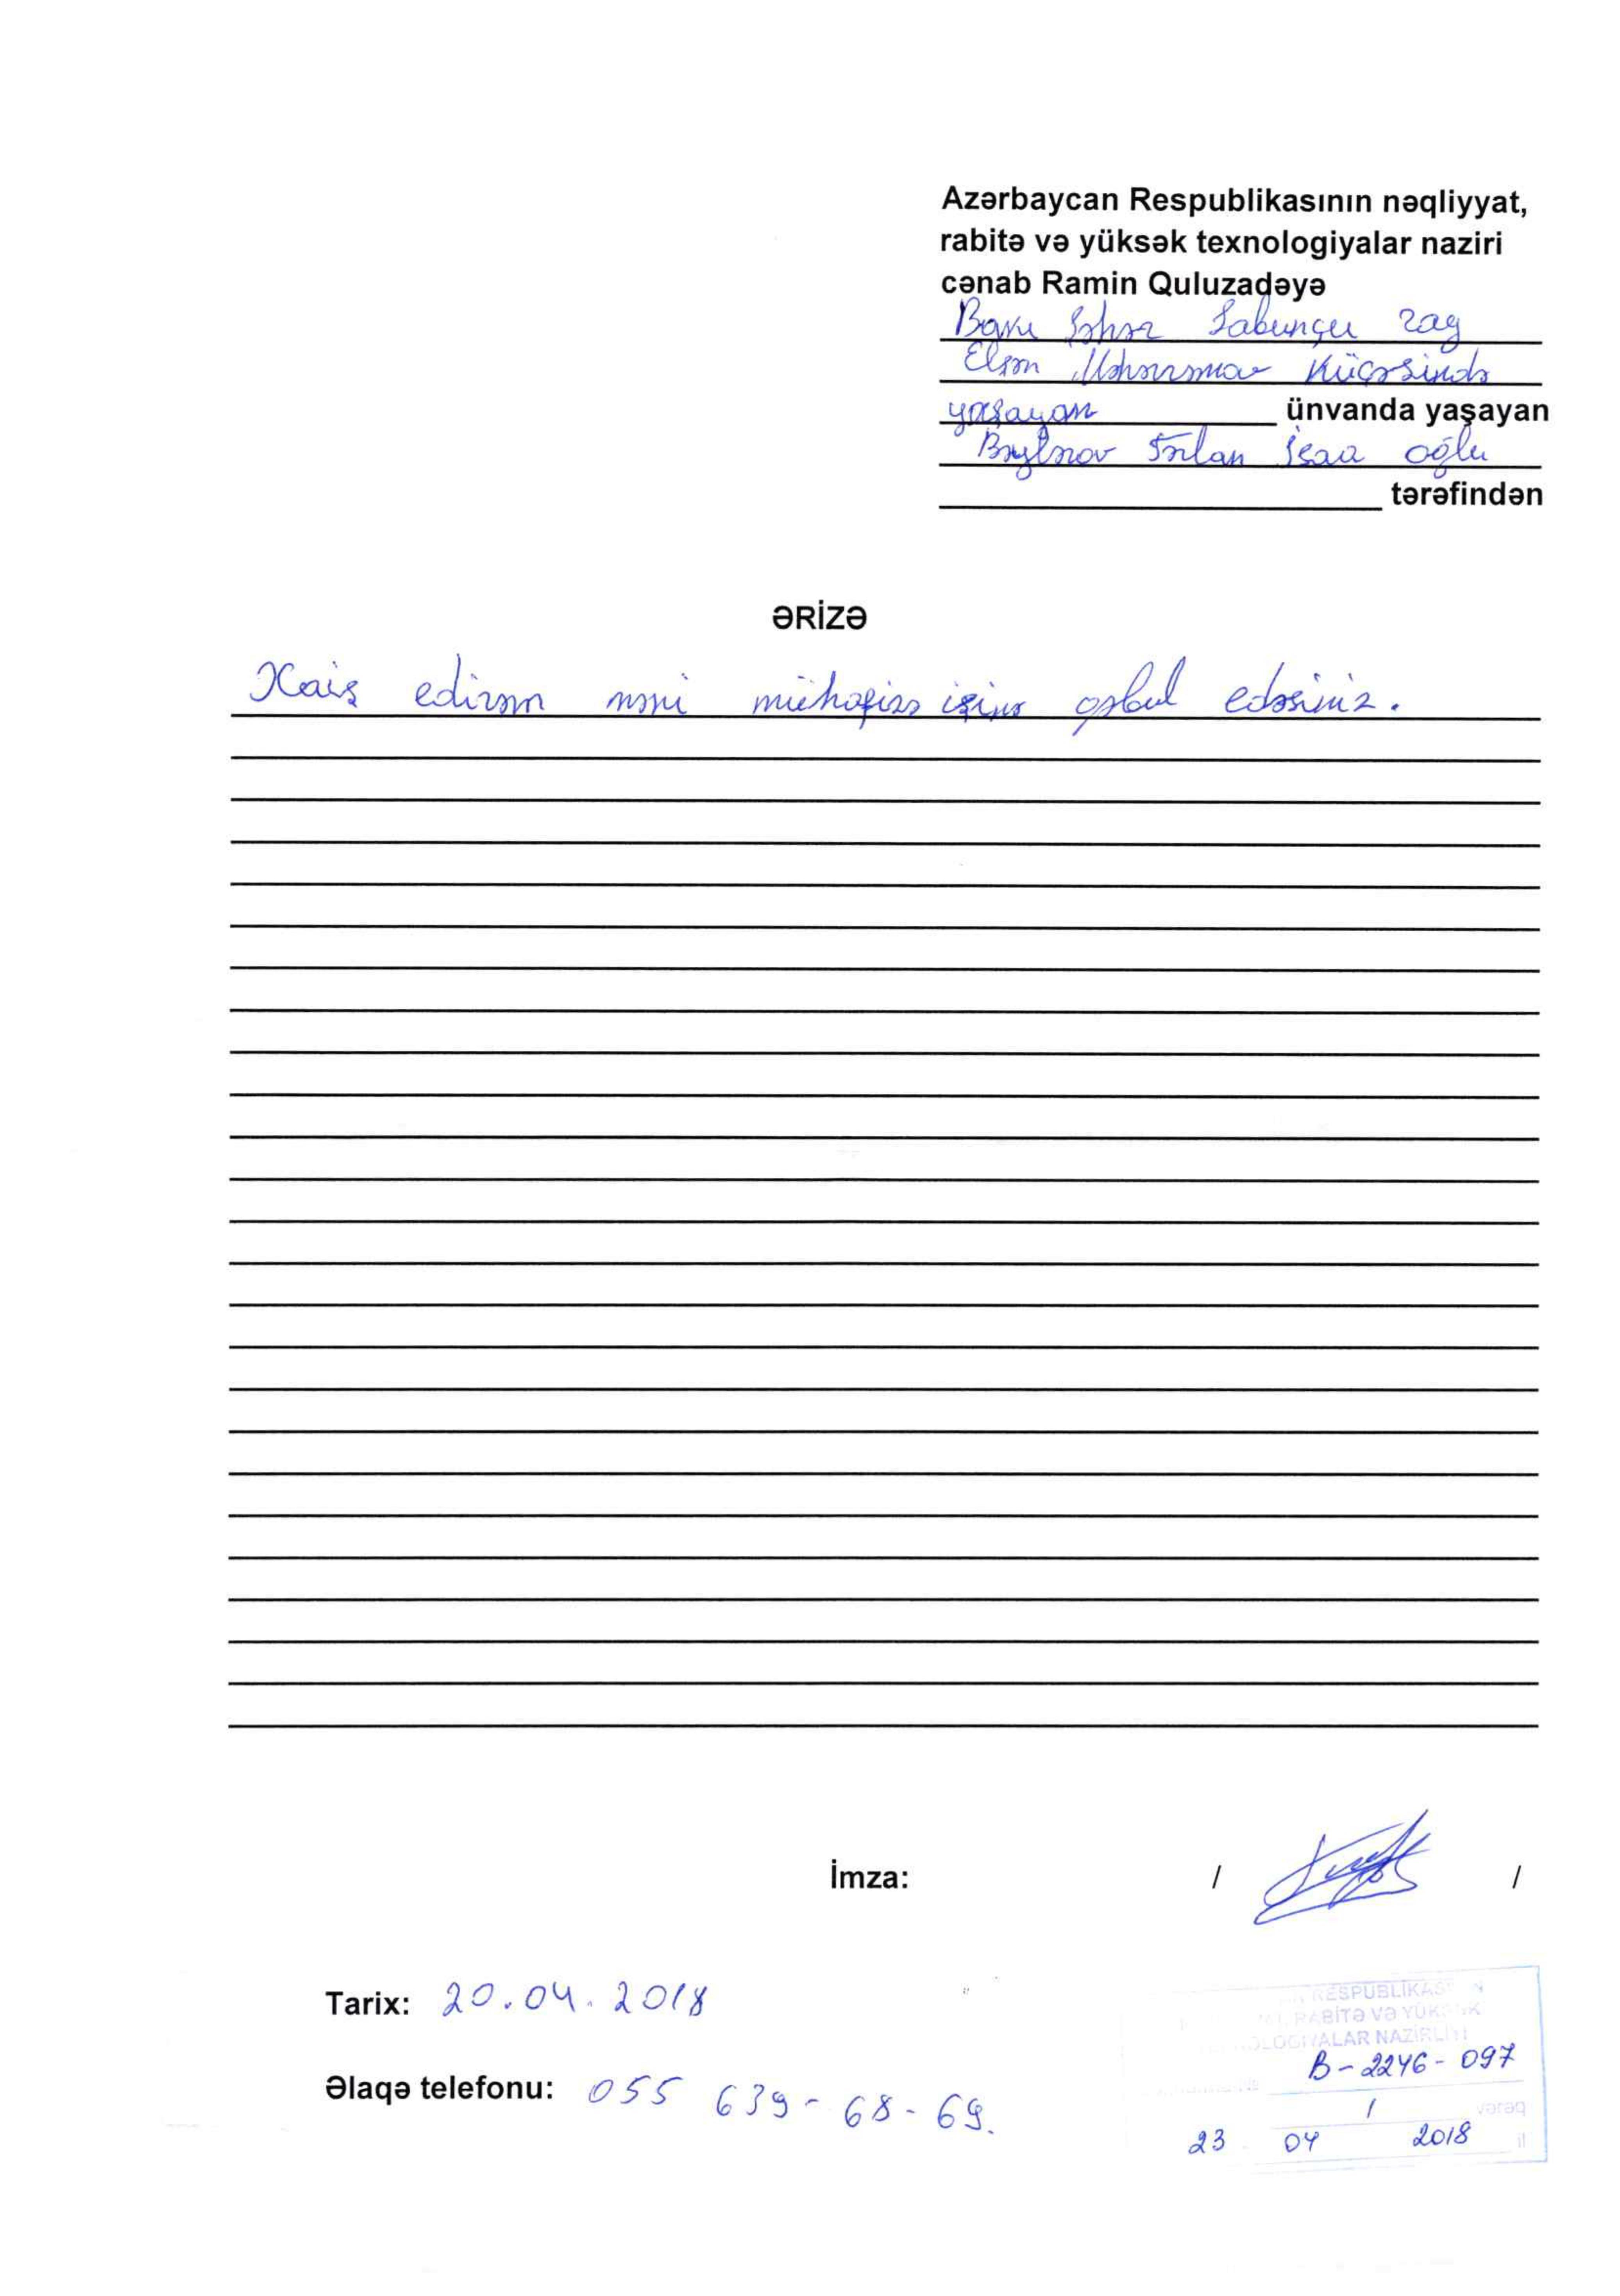 Azərbaycan Respublikasının nəqliyyat,
rabitə və yüksək texnologiyalar naziri
cənab Ramin Quluzadəyə
Bakı Şəhər Sabunçu ray
Elşən Məhərrəmov Küçəsində
yaşayan ünvanda yaşayan
Bəylərov Tərlan İsa oğlu
tərəfindən
ƏRİZƏ
Xaiş edirəm məni mühafizə işinə qəbul edəsiniz.
İmza: / /
Tarix: 20.04.2018
RESPUBLİKASI
RABİTƏ VƏ YÜKSƏK
NAZİRLİYİ
B-2246-097
Əlaqə telefonu: 055 639-68-69.
1 vərəq
23 04 2018 il